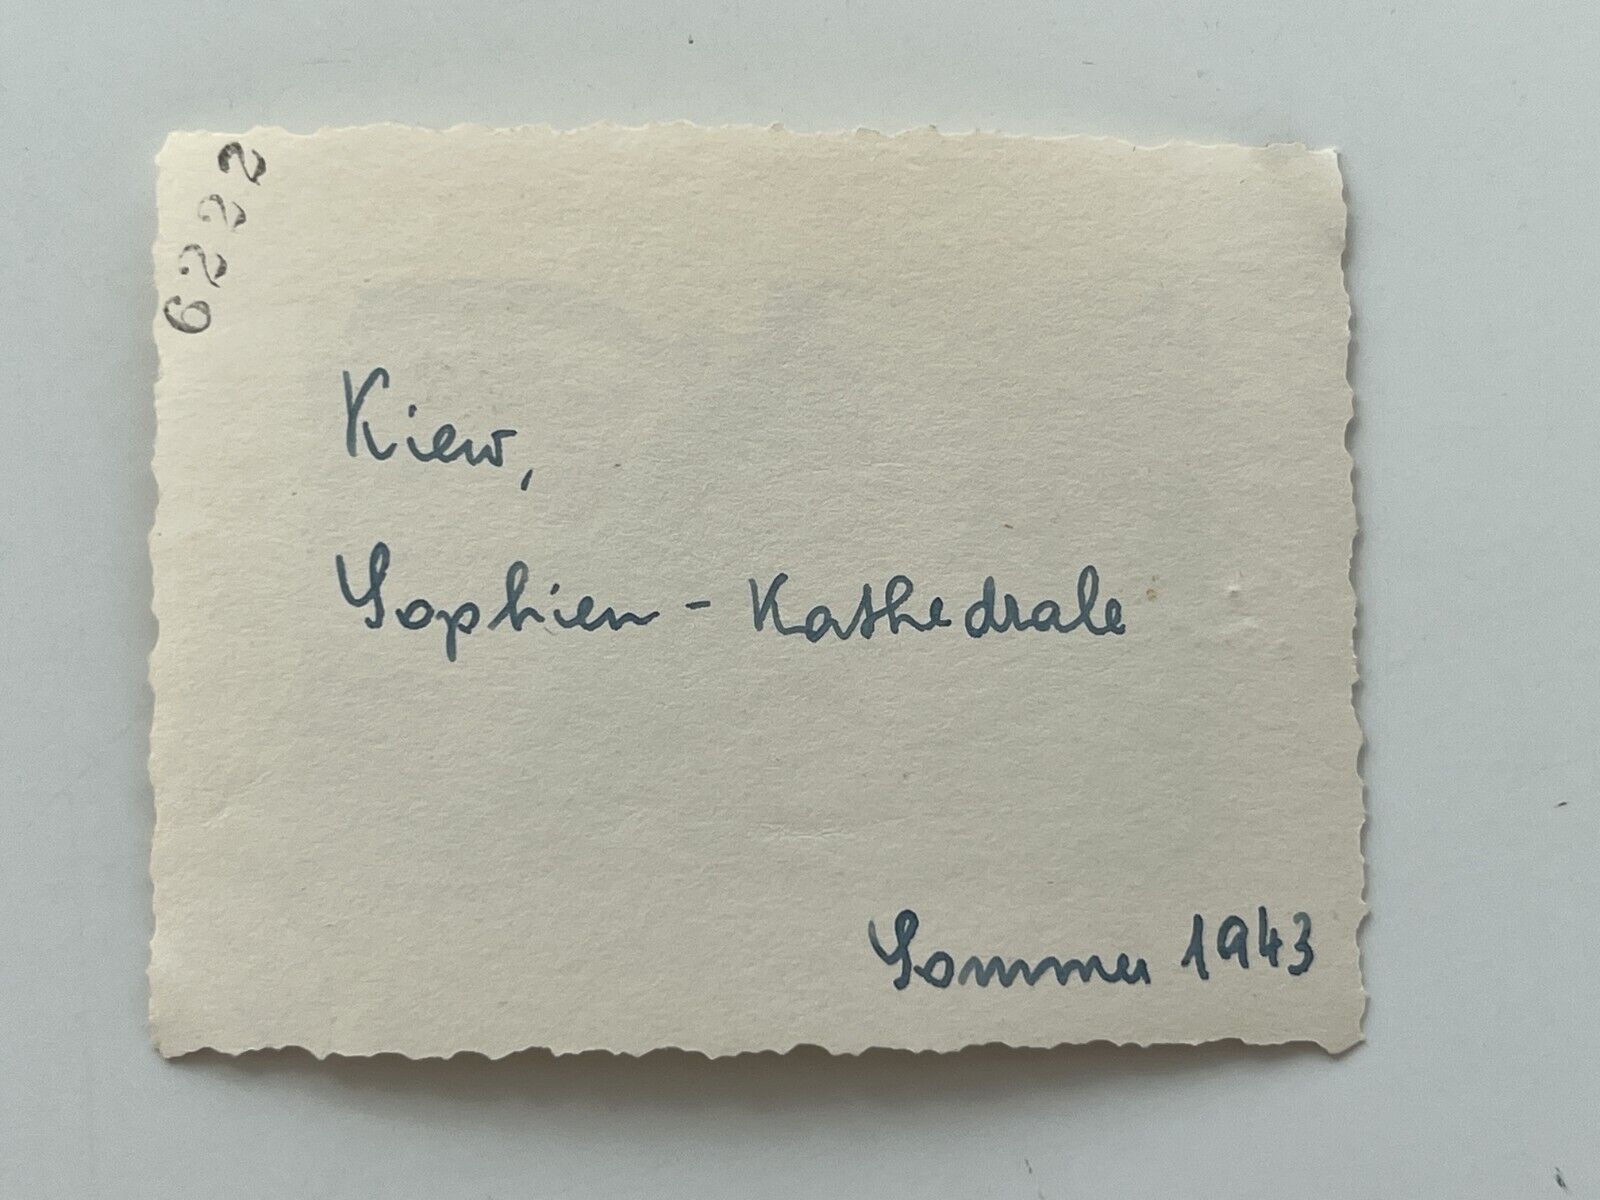 6222
Kiew,
Sophien - Kathedrale
Sommer 1943